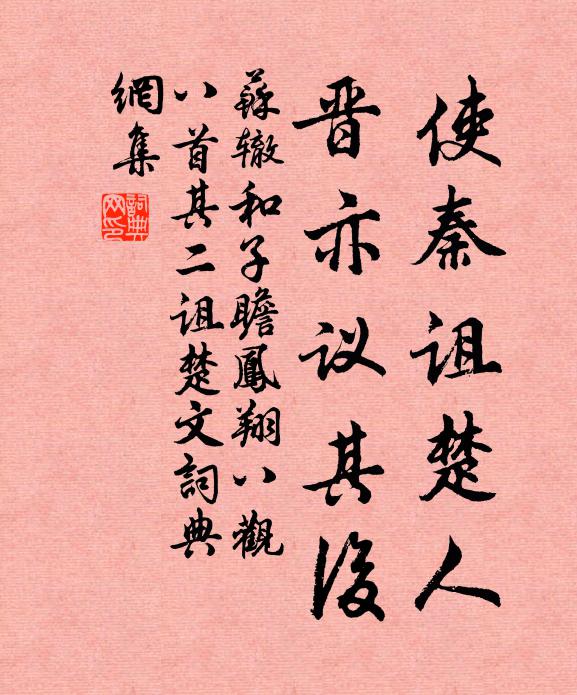 使秦诅楚人
晋亦议其後
蘇辙和子瞻鳳翔八觀
八首其二诅楚文詞典
網集
詞典
网印